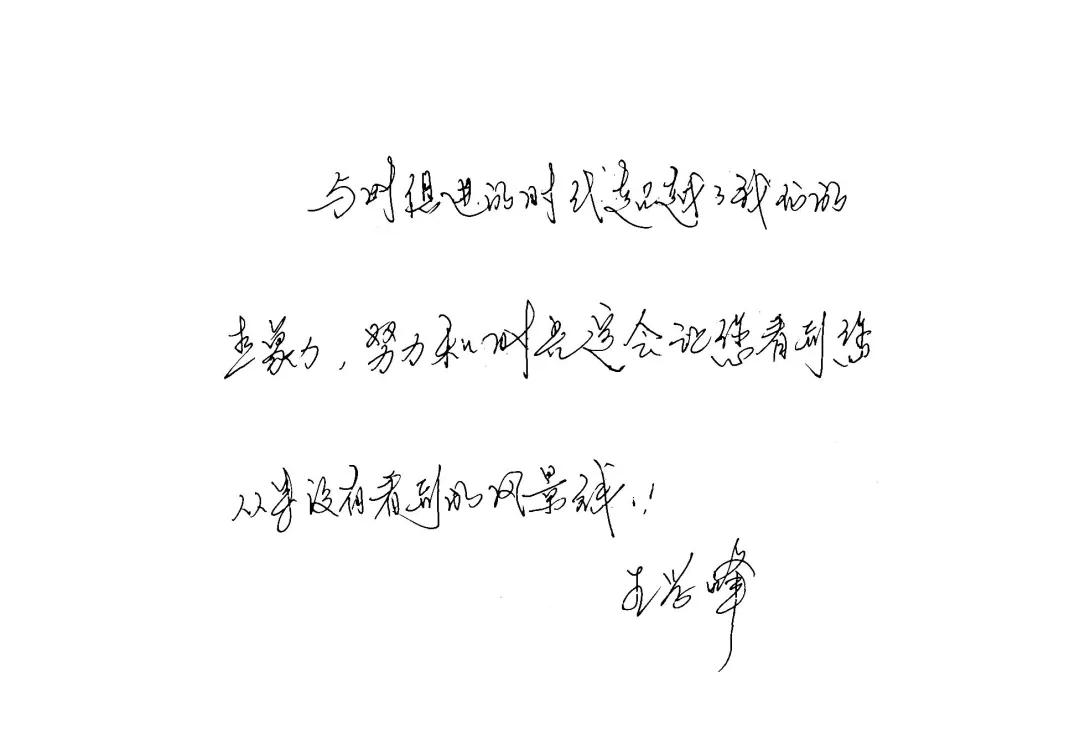 与时俱进的时代超越了我们的
想象力，努力和时光定会让您看到您
从来没有看到的风景线！！
王学峰